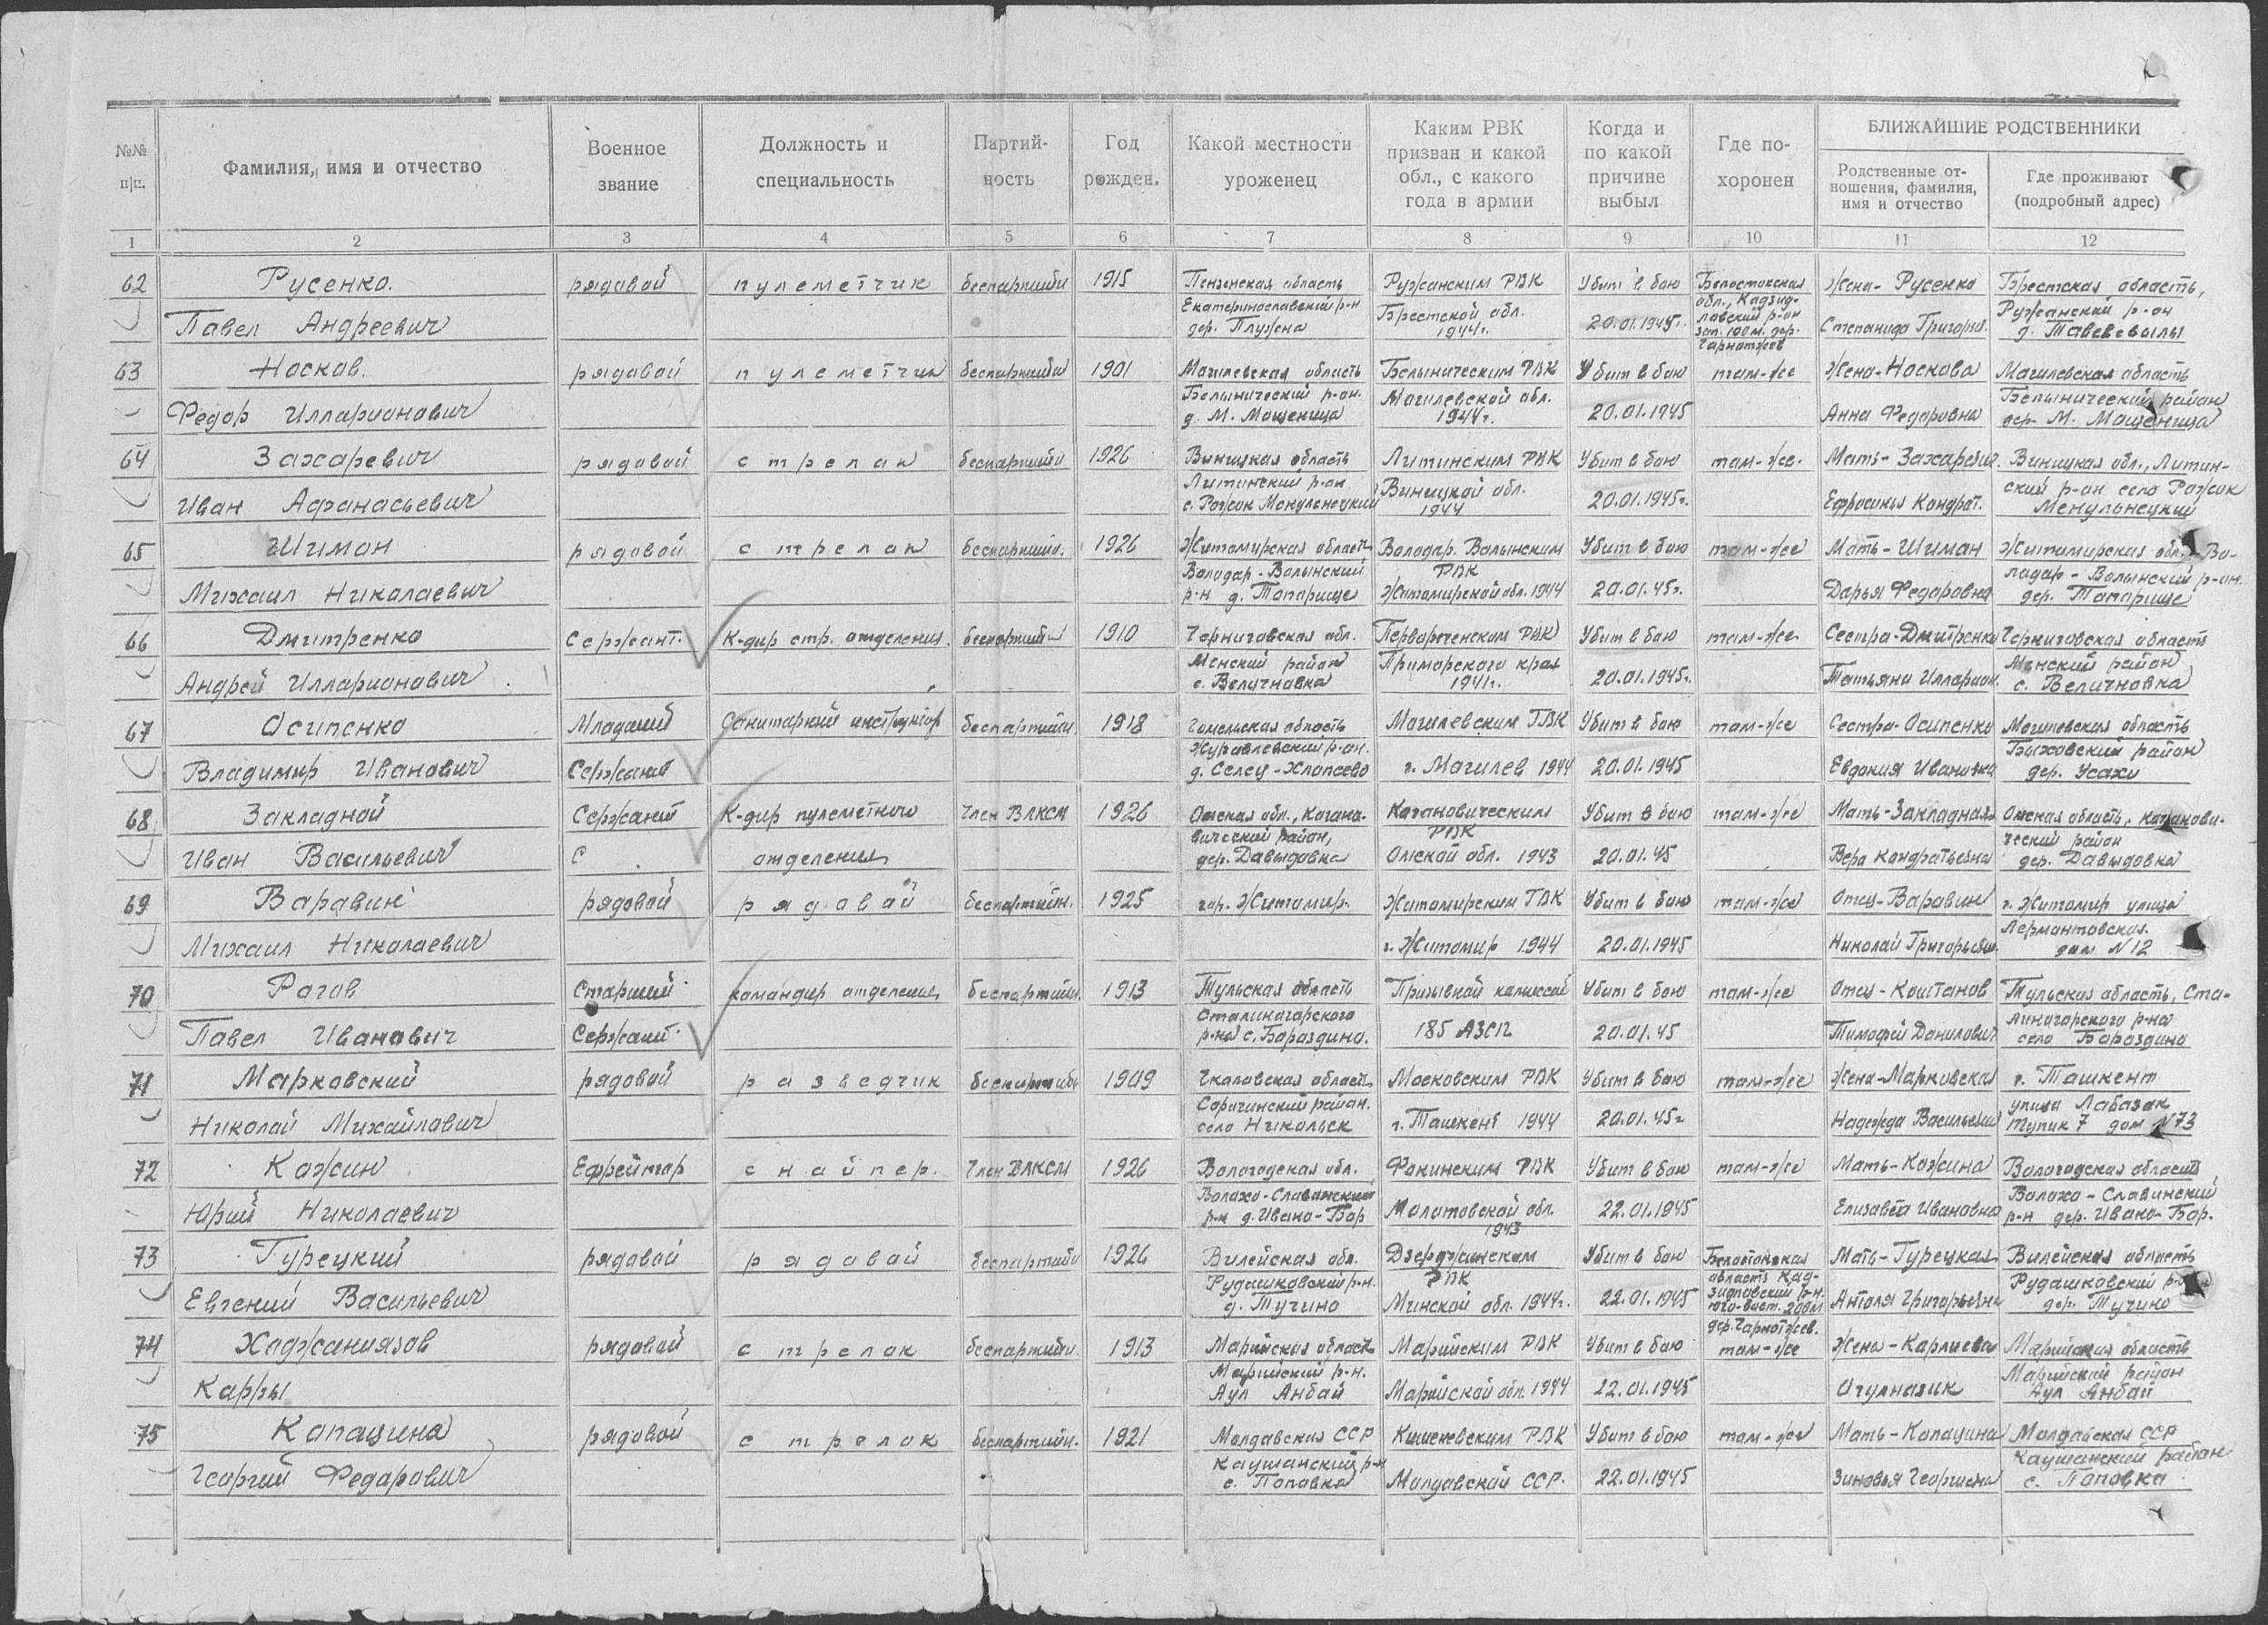 №№ п/п.
Фамилия, имя и отчество
Военное звание
Должность и специальность
Партий-ность
Год рожден.
Какой местности уроженец
Каким РВК призван и какой обл., с какого года в армии
Когда и по какой причине выбыл
Где по-хоронен
БЛИЖАЙШИЕ РОДСТВЕННИКИ
Родственные от-ношения, фамилия, имя и отчество
Где проживают (подробный адрес)
1 2 3 4 5 6 7 8 9 10 11 12
62 Русенко. рядовой пулеметчик беспартийн 1915 Пензенская область Ружанским РВК Убит в бою Белостокская Жена- Русенко Брестская область,
Екатеринославский р-н обл., Кадзид-
Павел Андреевич дер. Плужена Брестской обл. 1944г. 20.01.1945г. ловский р-он зап. 100 м. дер. Чарнотжев Степанида Григорьев. Ружанский р-он д.
63 Носков. рядовой пулеметчик беспартийн 1901 Могилевская область Белыническим РВК Убит в бою там-же Жена-Носкова Могилевская область
Белынический р-он. Белынический район
Федор Илларионович д. М. Мощеница Могилевской обл. 1944г. 20.01.1945 Анна Федоровна дер. М. Мощеница
64 Захаревич рядовой стрелок беспартийн 1926 Виницкая область Литинским РВК Убит в бою там-же. Мать- Захаревич. Виницкая обл., Литин-
Литинский р-он ский р-он село Рожок
Иван Афанасьевич с. Рожок Виницкой обл. 1944 20.01.1945г. Ефросинья Кондрат.
65 Шиман рядовой стрелок беспартийн. 1926 Житомирская область Володар. Волынским РВК Убит в бою там-же Мать-Шиман Житомирская обл., Во-
Володар-Волынский лодар-Волынский р-он.
Михаил Николаевич р-н д. Топорище Житомирской обл. 1944 20.01.45г. Дарья Федоровна дер. Топорище
66 Дмитренко Сержант. К-дир стр. отделения. беспартийн 1910 Черниговская обл. РВК Убит в бою там-же Сестра-Дмитренко Черниговская область
Менский район Менский район
Андрей Илларионович с. Величковка Приморского края 1941г. 20.01.1945г. Татьяна Илларион. с. Величковка
67 Осипенко Младший Санитарный инструктор беспартийн. 1918 Гомельская область Могилевским ГВК Убит в бою там-же Сестра-Осипенко Могилевская область
Журавлевский р-он. Быховский район
Владимир Иванович Сержант д. Селец-Хлопсево г. Могилев 1944 20.01.1945 Евдокия Ивановна дер. Усохи
68 Закладной Сержант К-дир пулеметного Член ВЛКСМ 1926 Омская обл., Кагано- Кагановическим РВК Убит в бою там-же Мать-Закладная Омская область, Каганови-
вический район, ческий район
Иван Васильевич С отделения дер. Давыдовка Омской обл. 1943 20.01.45 Вера Кондратьевна дер. Давыдовка
69 Варавин рядовой рядовой беспартийн. 1925 гор. Житомир. Житомирским ГВК Убит в бою там-же Отец-Варавин г. Житомир улица
Лермонтовская.
Михаил Николаевич г. Житомир 1944 20.01.1945 Николай Григорьевич дом N 12
70 Рогов Старший командир отделения беспартийн. 1913 Тульская область Призывной комиссией Убит в бою там-же Отец-Коштанов Тульская область, Ста-
Сталиногорского линогорского р-на
Павел Иванович Сержант. р-на с. Бороздино. 185 АЗСП 20.01.45 Тимофей Данилович село Бороздино
71 Марковский рядовой разведчик беспартийн 1909 Чкаловская область Московским РВК Убит в бою там-же Жена-Марковская г. Ташкент
Сорочинский район. улица Лабазак
Николай Михайлович село Никольск г. Ташкент 1944 20.01.45г Надежда Васильевна Тупик 7 дом N 73
72 Кожин Ефрейтор снайпер. Член ВЛКСМ 1926 Вологодская обл. Фокинским РВК Убит в бою там-же Мать-Кожина Вологодская область
Волохо-Славинский Волохо-Славинский
Юрий Николаевич р-н д. Ивано-Бор Молотовской обл. 1943 22.01.1945 Елизавета Ивановна р-н дер. Ивано-Бор.
73 Турецкий рядовой рядовой беспартийн 1926 Вилейская обл. Дзержинским РВК Убит в бою Белостокская Мать-Турецкая Вилейская область
Рудашковский р-н. область Кад-зидловский р-н. Рудашковский р-он
Евгений Васильевич д. Тучино Минской обл. 1944г. 22.01.1945 юго-вост. 200м дер. Чарнотжев. Антоля Григорьевна дер. Тучино
74 Хаджаниязов рядовой стрелок беспартийн. 1913 Марийская область Марийским РВК Убит в бою там-же Жена-Карлиева Марийская область
Марийский р-н. Марийский район
Карры Аул Анбай Марийской обл. 1944 22.01.1945 Огулназик Аул Анбай
75 Копацина рядовой стрелок беспартийн. 1921 Молдавская ССР Кишеневским РВК Убит в бою там-же Мать-Копацина Молдавская ССР
Каушанский р-н Каушанский район
Георгий Федорович с. Поповка Молдавской ССР. 22.01.1945 Зиновья Георгиевна с. Поповка